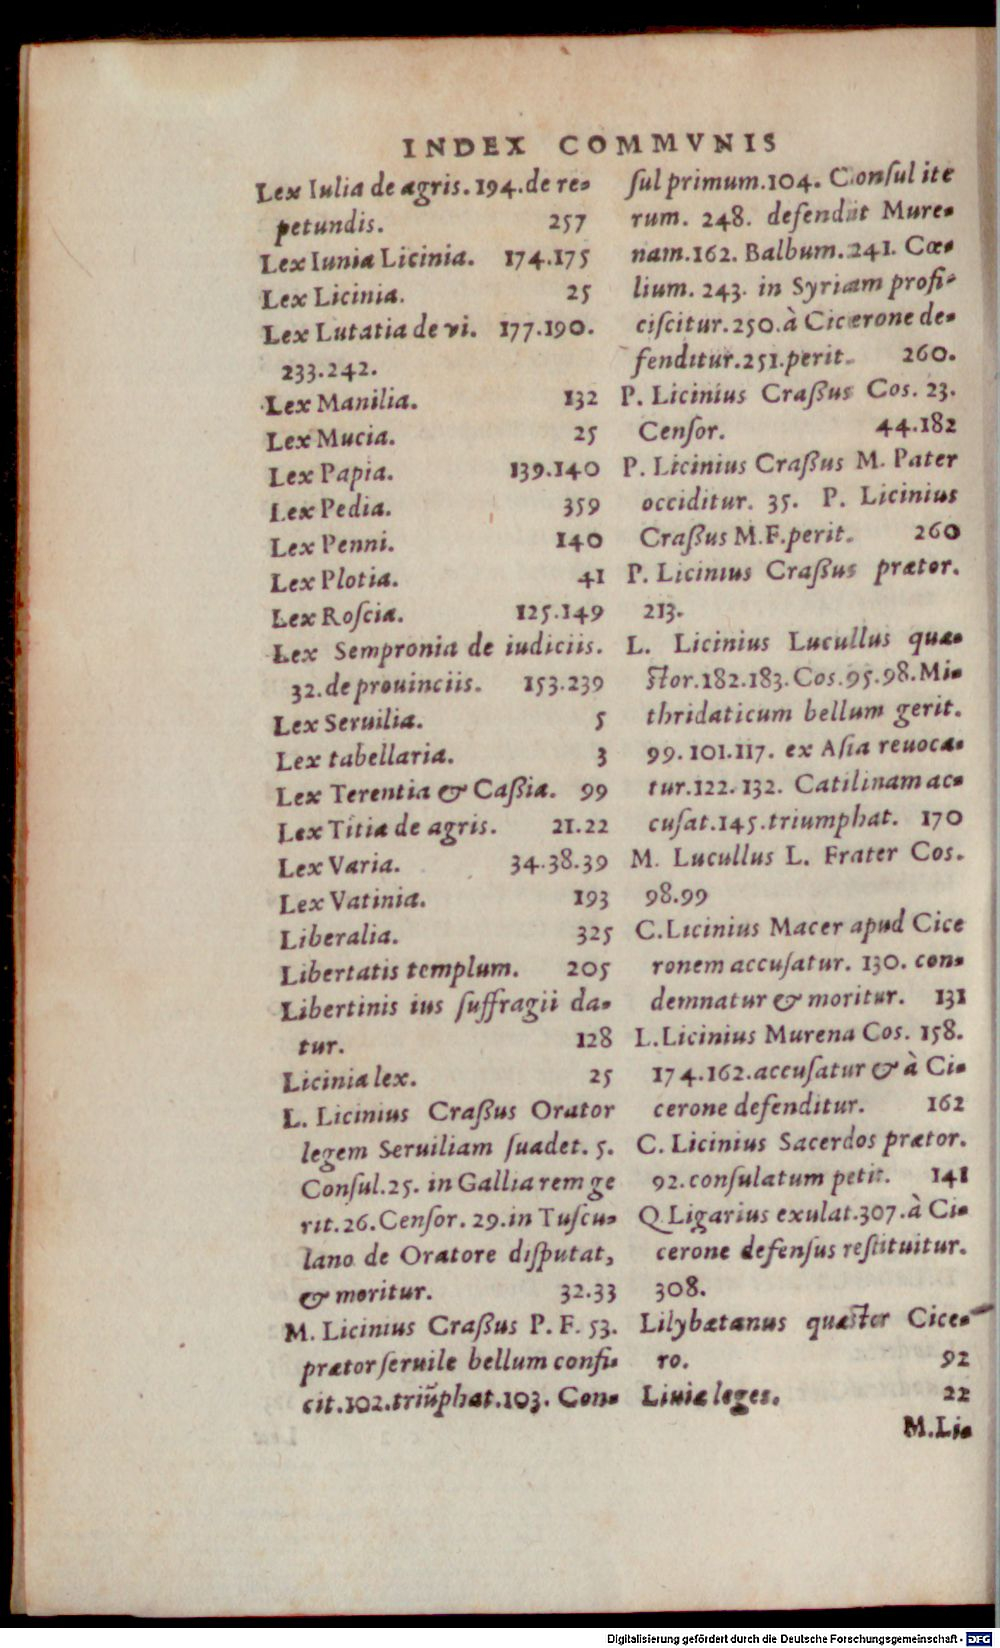 INDEX COMMVNIS
Lex Iulia de agris. 194. de re-
petundis. 257
Lex Iunia Licinia. 174.175
Lex Licinia. 25
Lex Lutatia de vi. 177.190.
233.242.
Lex Manilia. 132
Lex Mucia. 25
Lex Papia. 139.140
Lex Pedia. 359
Lex Penni. 140
Lex Plotia. 41
Lex Roſcia. 125.149
Lex Sempronia de iudiciis.
32. de prouinciis. 153.239
Lex Seruilia. 5
Lex tabellaria. 3
Lex Terentia & Caßia. 99
Lex Titia de agris. 21.22
Lex Varia. 34.38.39
Lex Vatinia. 193
Liberalia. 325
Libertatis templum. 205
Libertinis ius ſuffragii da-
tur. 128
Licinia lex. 25
L. Licinius Craßus Orator
legem Seruiliam ſuadet. 5.
Conſul. 25. in Gallia rem ge
rit. 26. Cenſor. 29. in Tuſcu-
lano de Oratore diſputat,
& moritur. 32.33
M. Licinius Craßus P. F. 53.
prætor ſeruile bellum confi-
cit. 102. triũphat. 103. Con-
ſul primum. 104. Conſul ite
rum. 248. defendit Mure-
nam. 162. Balbum. 241. Cœ-
lium. 243. in Syriam profi-
ciſcitur. 250. à Cicerone de-
fenditur. 251. perit. 260.
P. Licinius Craßus Cos. 23.
Cenſor. 44.182
P. Licinius Craßus M. Pater
occiditur. 35. P. Licinius
Craßus M. F. perit. 260
P. Licinius Craßus prætor.
213.
L. Licinius Lucullus quæ-
ſtor. 182.183. Cos. 95.98. Mi-
thridaticum bellum gerit.
99.101.117. ex Aſia reuoca-
tur. 122.132. Catilinam ac-
cuſat. 145. triumphat. 170
M. Lucullus L. Frater Cos.
98.99
C. Licinius Macer apud Cice
ronem accuſatur. 130. con-
demnatur & moritur. 131
L. Licinius Murena Cos. 158.
174.162. accuſatur & à Ci-
cerone defenditur. 162
C. Licinius Sacerdos prætor.
92. conſulatum petit. 141
Q. Ligarius exulat. 307. à Ci-
cerone defenſus reſtituitur.
308.
Lilybætanus quæſtor Cice-
ro. 92
Liuiæ leges. 22
M. Li-
Digitalisierung gefördert durch die Deutsche Forschungsgemeinschaft - DFG